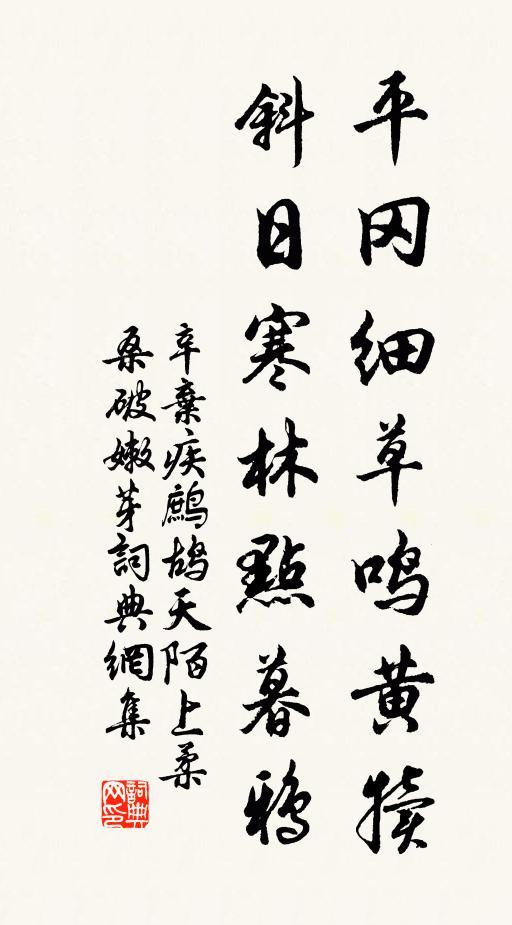 平冈细草鸣黄犊
斜日寒林點暮鸦
辛棄疾鷓鴣天陌上柔
桑破嫩芽詞典網集
詞典网印